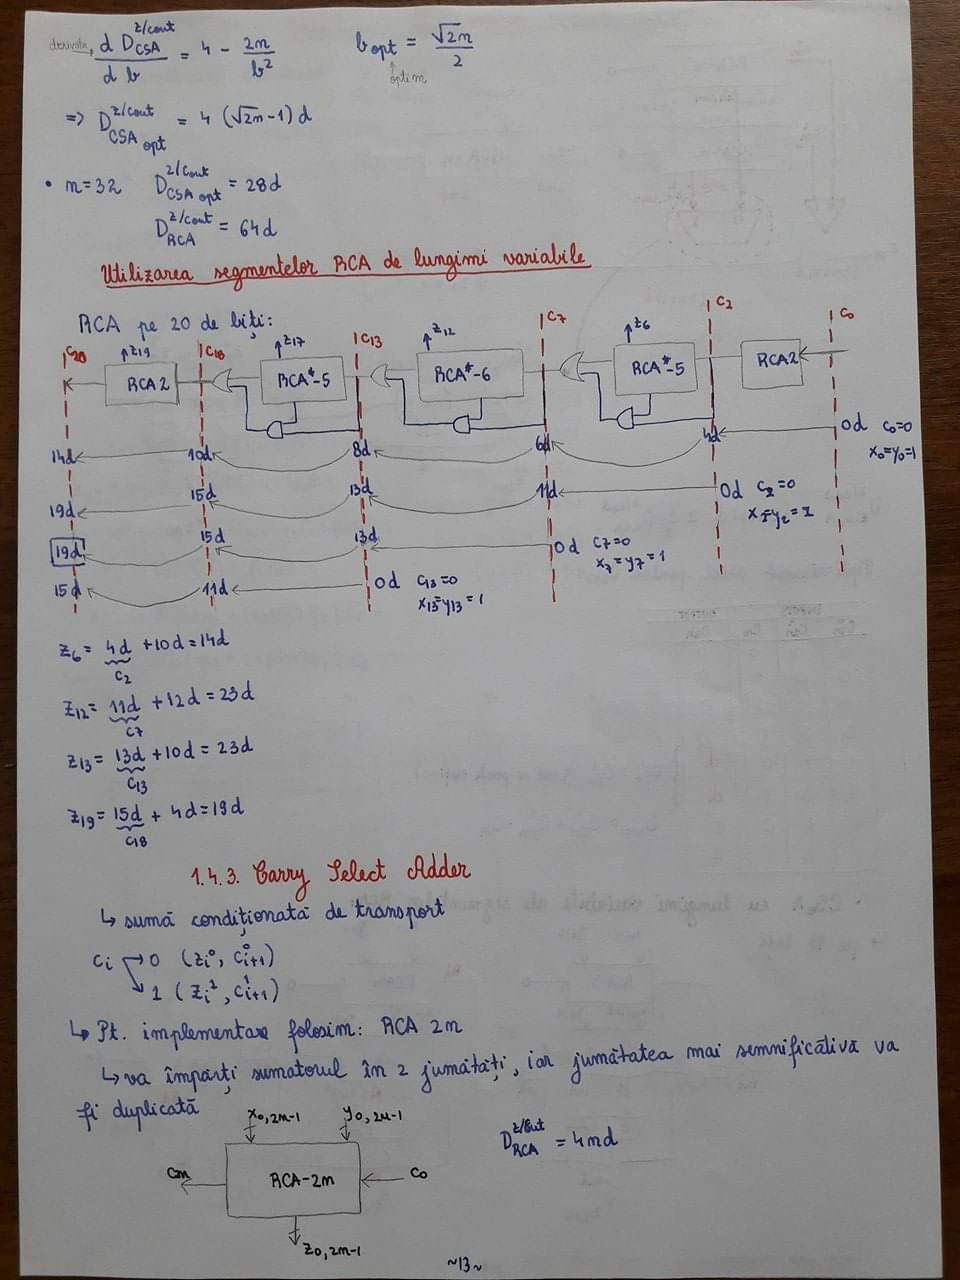 derivata, d D_CSA^z/cout / d b = 4 - 2n / b²   b_opt = √2n / 2
optim
=> D_CSA opt^z/cout = 4 (√2n-1) d
• n=32   D_CSA opt^z/cout = 28d
D_RCA^z/cout = 64d
Utilizarea segmentelor RCA de lungimi variabile
RCA pe 20 de biți:
C20 Z19 C18 Z17 C13 Z12 C7 Z6 C2 C0
RCA2 RCA*-5 RCA*-6 RCA*-5 RCA2
14d 10d 8d 6d 4d 0d C0=0
x0=y0=1
19d 15d 13d 11d 0d C2=0
19d 15d 13d 0d C7=0
x7=y7=1
15d 11d 0d C13=0
x13=y13=1
Z6= 4d +10d=14d
C2
Z12= 11d +12d=23d
C7
Z13= 13d +10d= 23d
C13
Z19= 15d + 4d=19d
C18
1.4.3. Carry Select Adder
↳ sumă condiționată de transport
Ci → 0 (Zi⁰, C⁰i+1)
1 (Zi¹, C¹i+1)
↳ Pt. implementare folosim: RCA 2n
↳ va împărți sumatorul în 2 jumătăți, iar jumătatea mai semnificativă va
fi duplicată
x0,2n-1 y0,2n-1
D_RCA^z/cout = 4nd
RCA-2n C0
Z0,2n-1
~13~